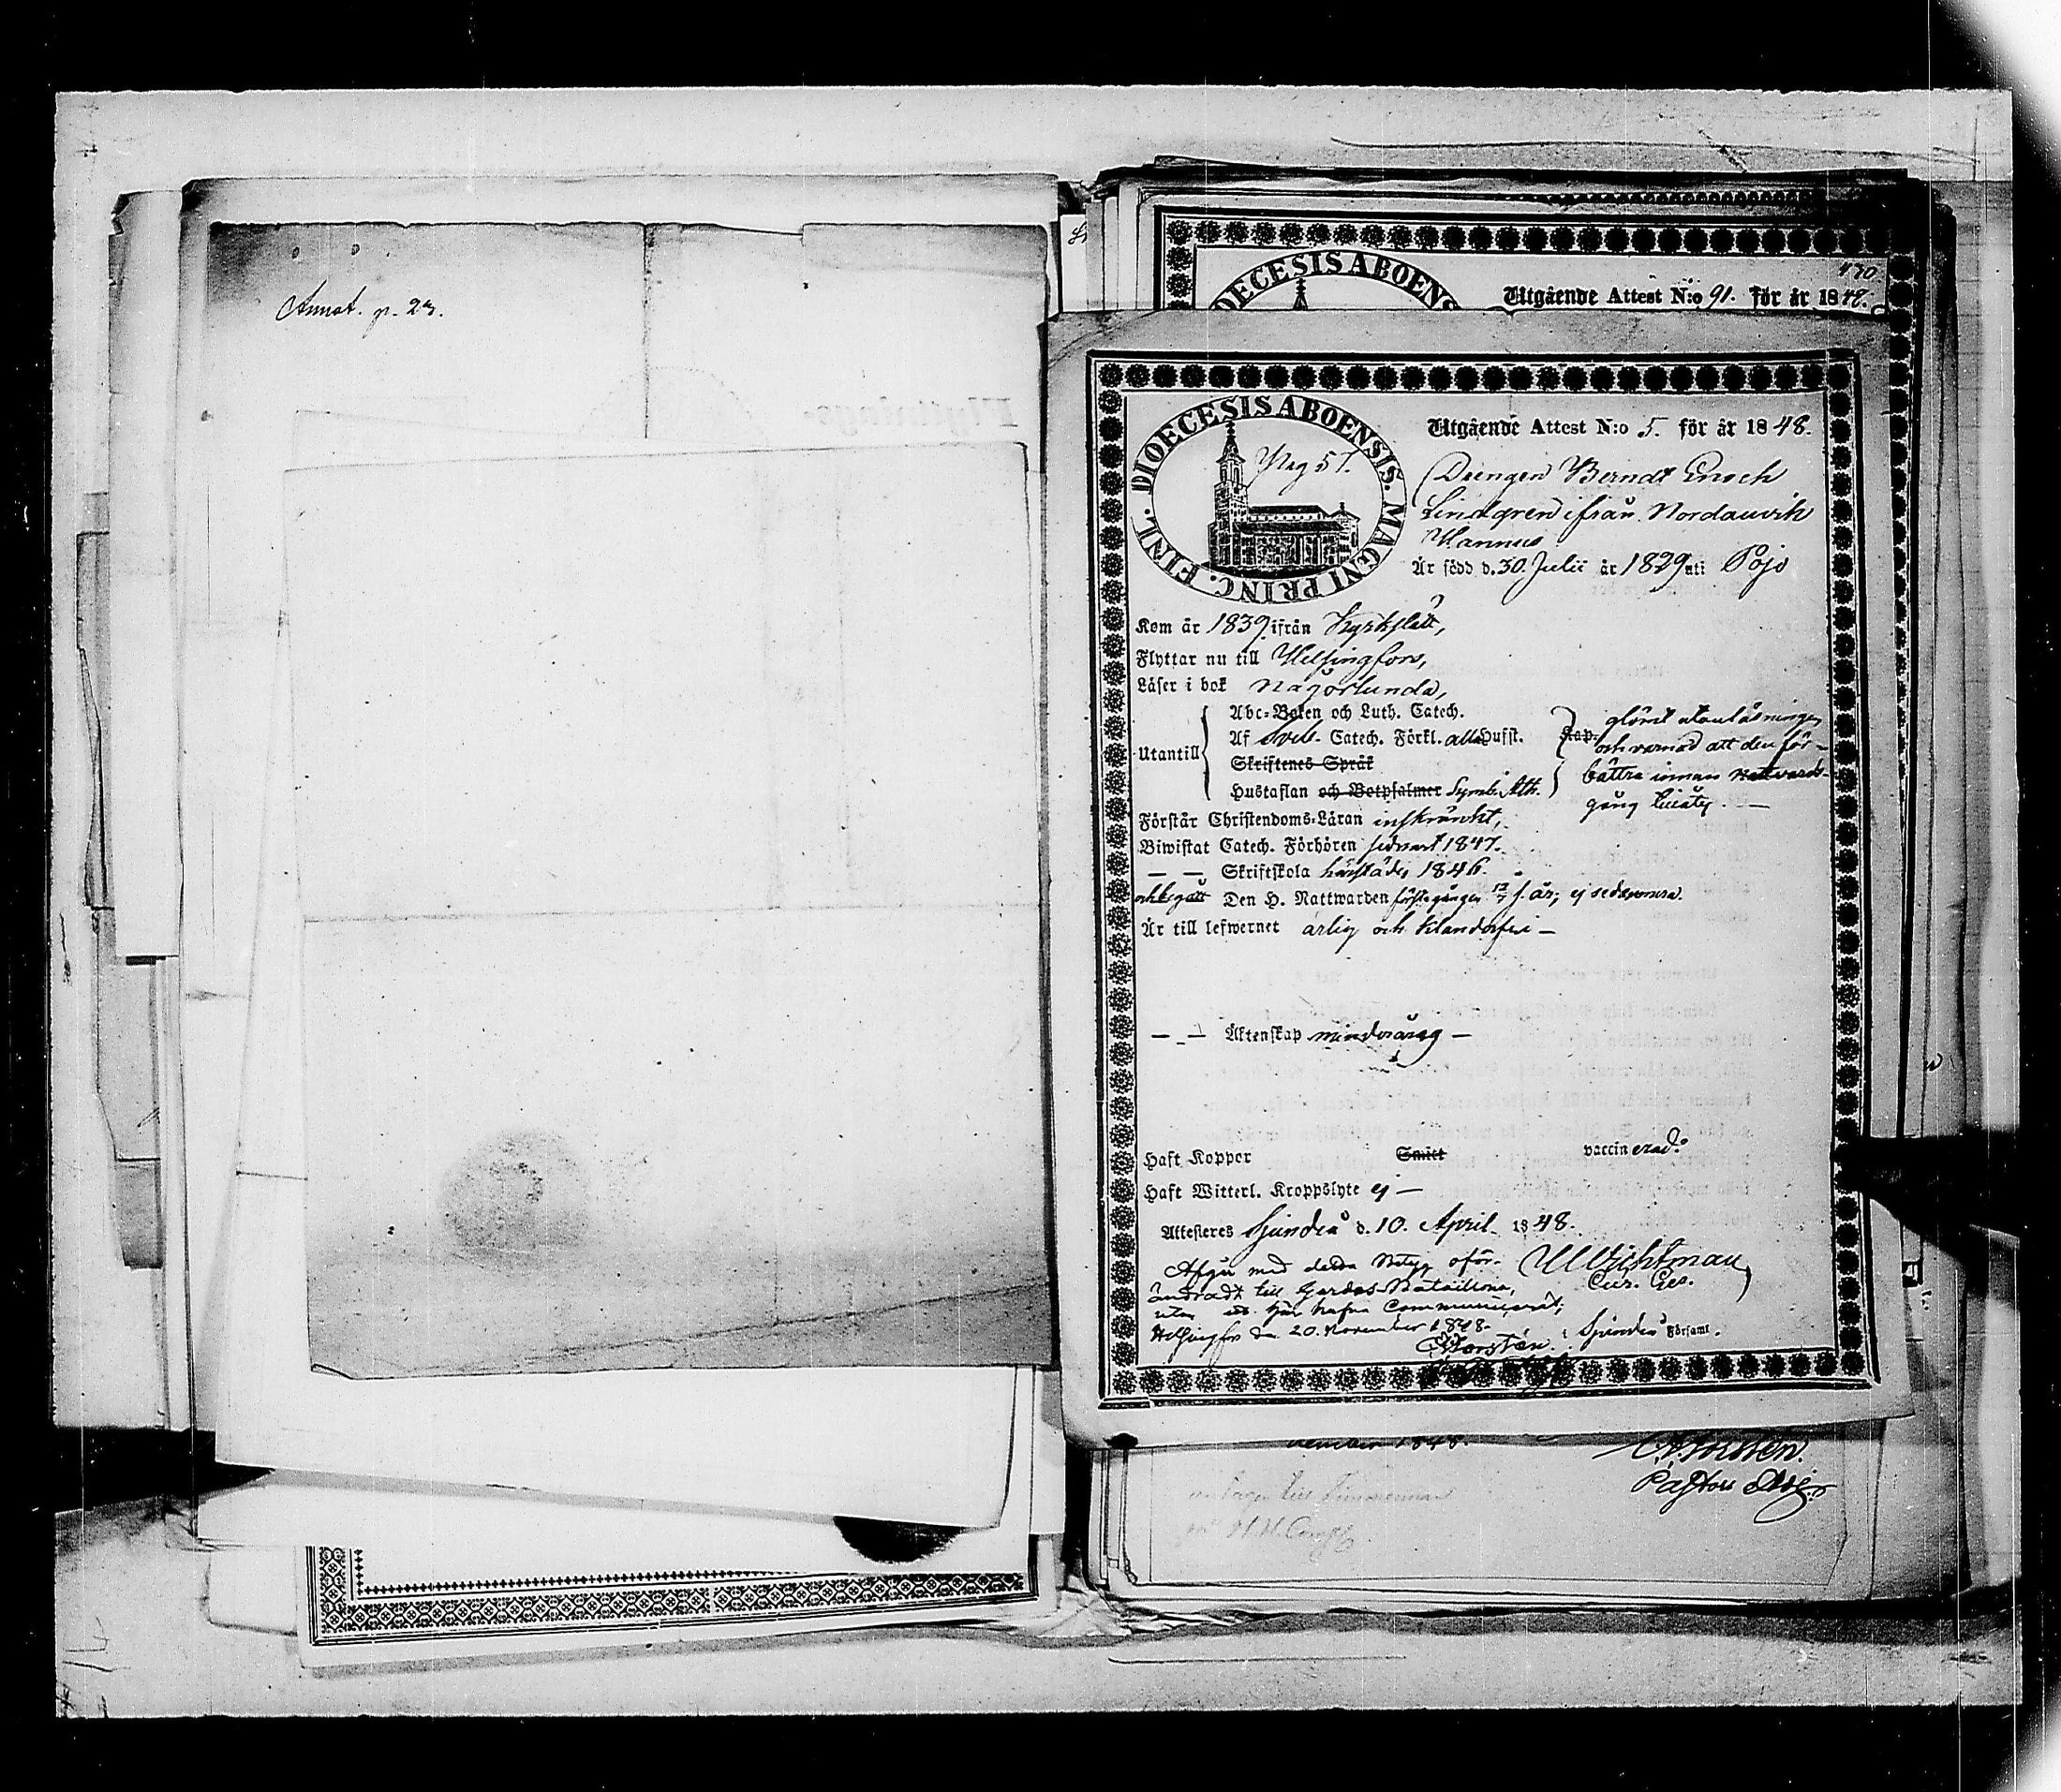 Annot. p. 23.
DIOECESIS ABOENS
470.
Utgående Attest N:o 91. för år 1848.
DIOECESIS ABOENSIS. MAGNI PRINC. FINL.
Pag 57.
Utgående Attest N:o 5. för år 1848.
Drengen Berndt Enoch
Lindgren ifrån Nordanvik
Hannus
Är född d. 30 Julii år 1829 uti Pojo
Kom år 1839 ifrån Kyrkslätt,
Flyttar nu till Helsingfors,
Läser i bok någorlunda,
Utantill
Abc-Boken och Luth. Catech.
Af Sveb. Catech. Förkl. alla Hufst. Kap.
Skriftenes Språk
Hustaflan och Botpsalmer Symb. Ath.
glömt utanläsningen
och varnad att den för-
bättra innan Nattvards-
gång
Förstår Christendoms-Läran inskränkt,
Biwistat Catech. Förhören sednast 1847.
— — Skriftskola härstädes 1846.
och begått Den H. Nattwarden första gången 12/7 s. år; ej sedermera.
Är till lefwernet ärlig och klanderfri —
— — Äktenskap minderårig —
Haft Koppor Smitt vaccinerad.
Haft Witterl. Kroppslyte ej —
Attesteres Sjundeå d. 10. April 1848.
Afgår med detta betyg oför-
ändradt till Gardes-Bataillonen,
utan att här hafva Communicerat;
Helsingfors den 20. November 1848.
Wichtman
Cur. Ges.
i Sjundeå Församl.
Forstén.
vember 1848.
Forstén.
Pastors Adj.
till Timmerman